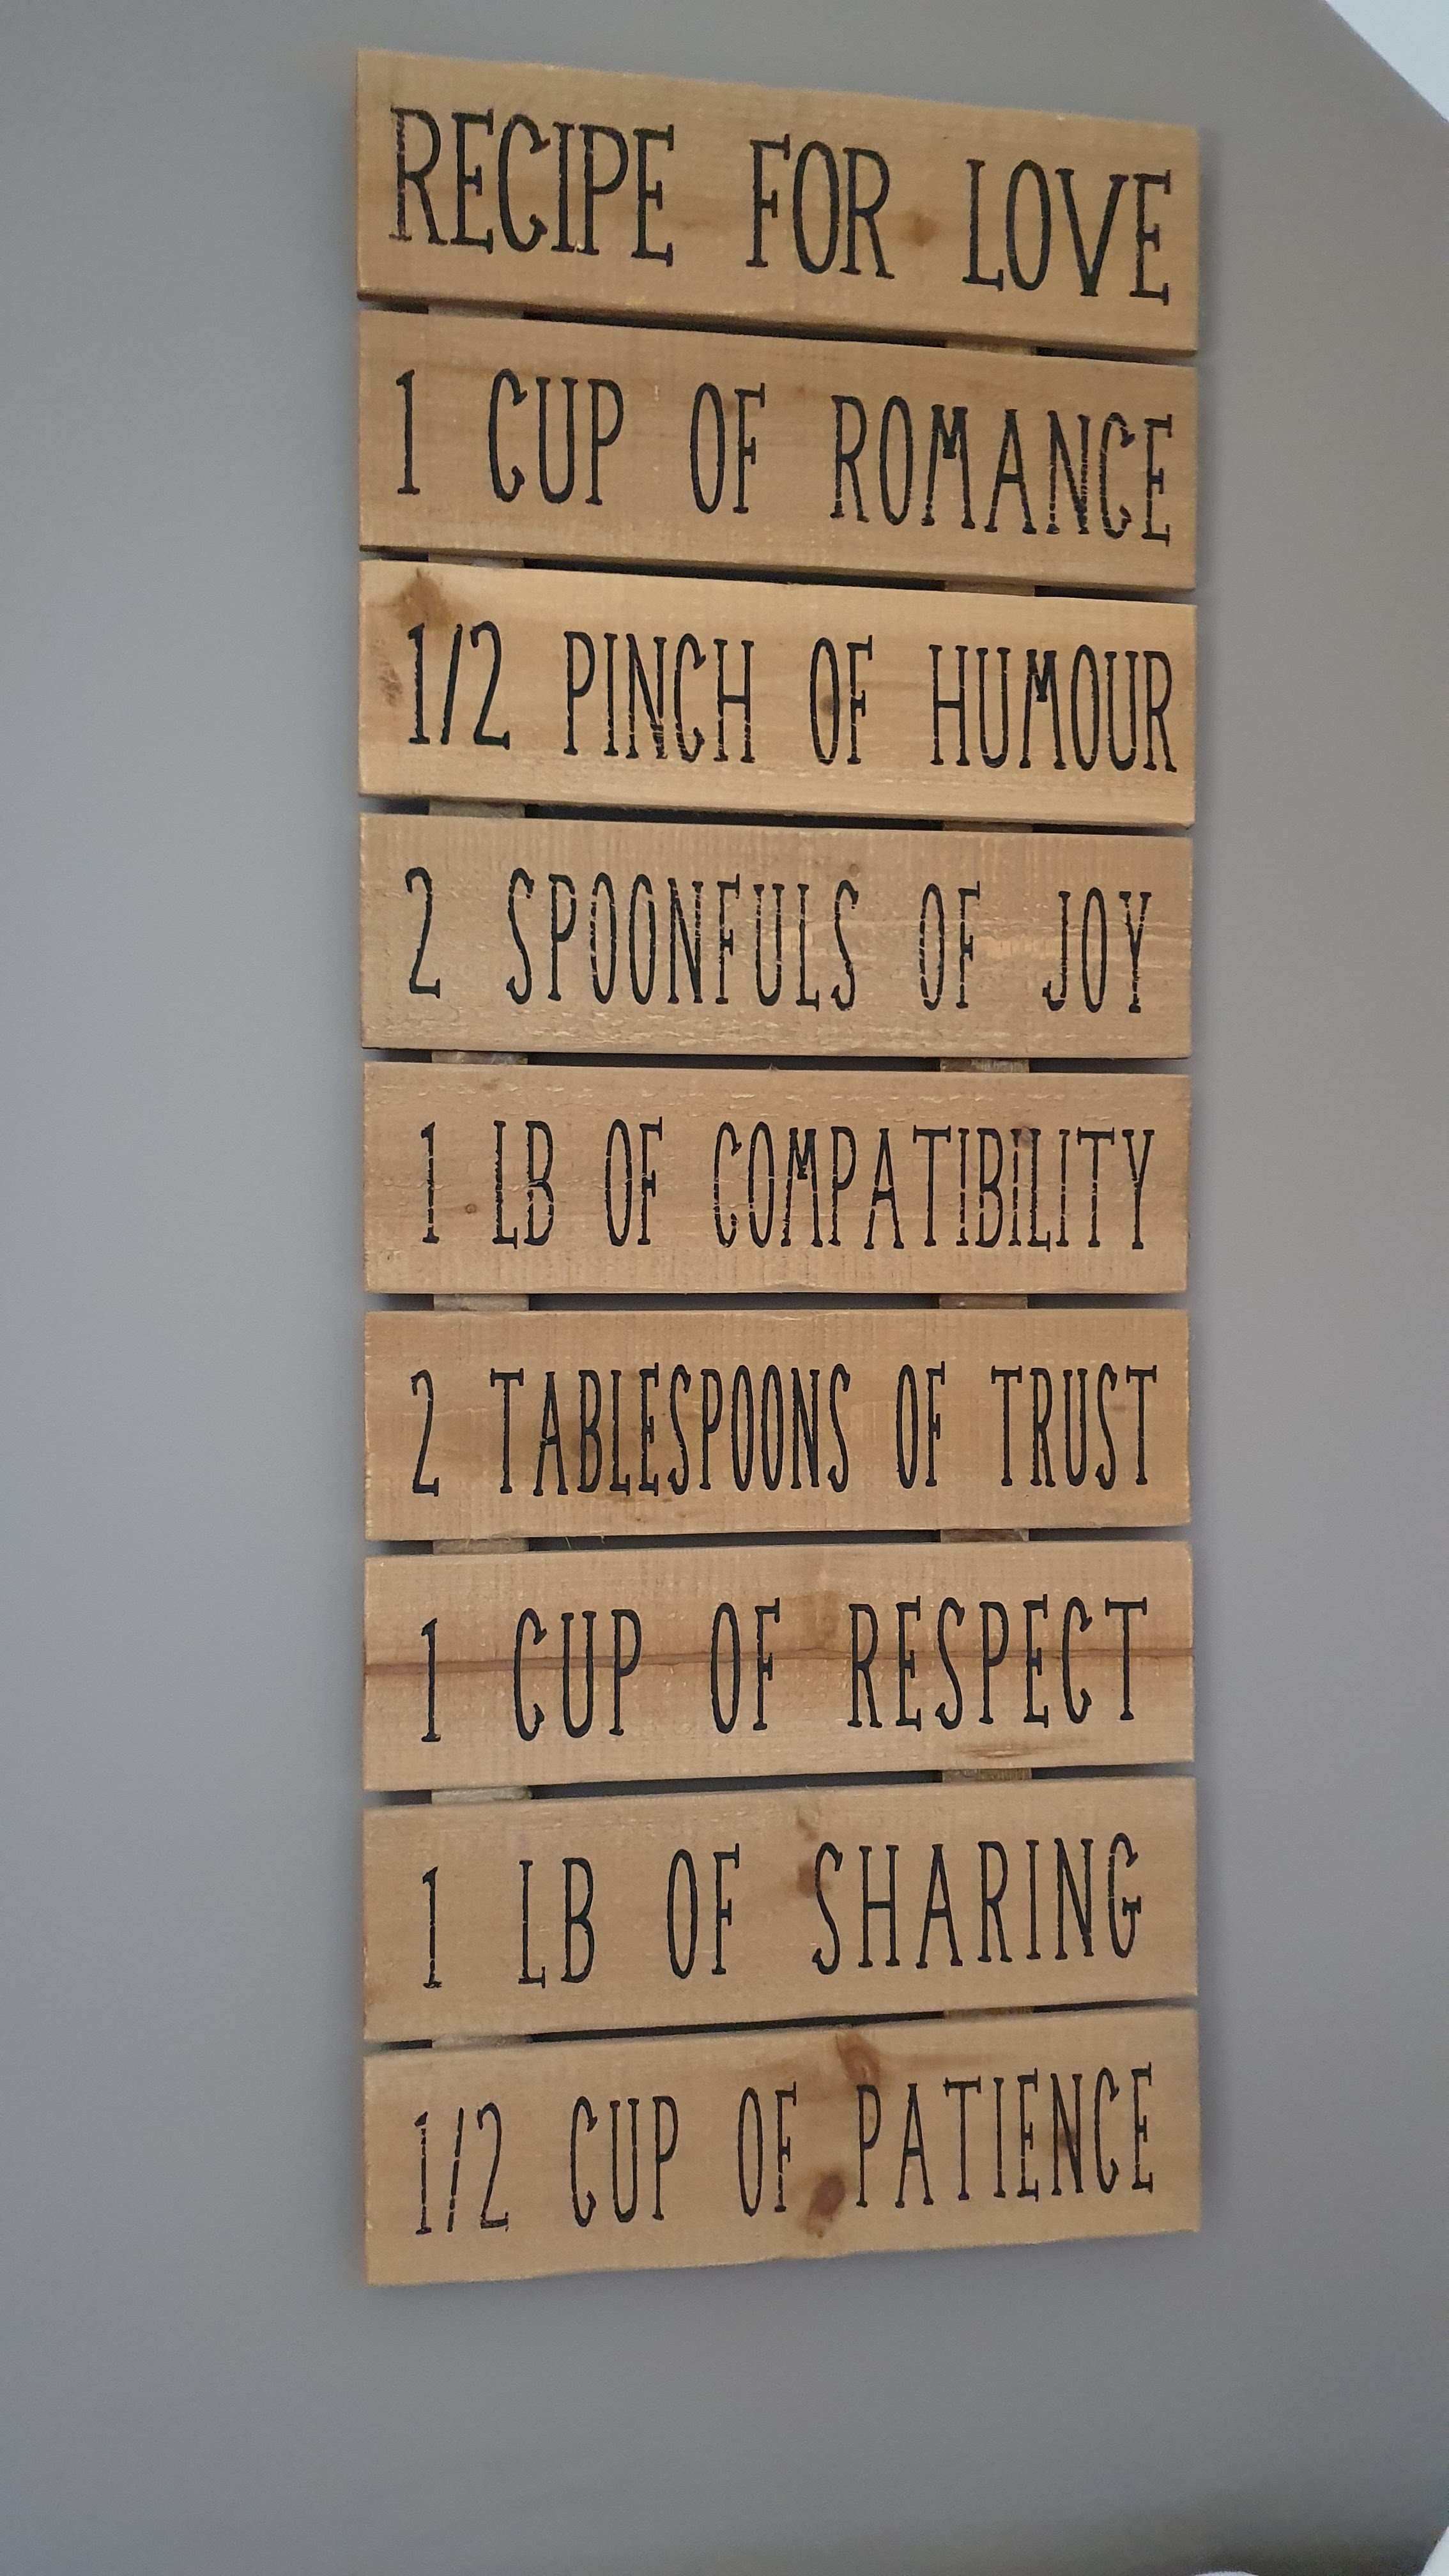 RECIPE FOR LOVE
1 CUP OF ROMANCE
1/2 PINCH OF HUMOUR
2 SPOONFULS OF JOY
1 LB OF COMPATIBILITY
2 TABLESPOONS OF TRUST
1 CUP OF RESPECT
1 LB OF SHARING
1/2 CUP OF PATIENCE